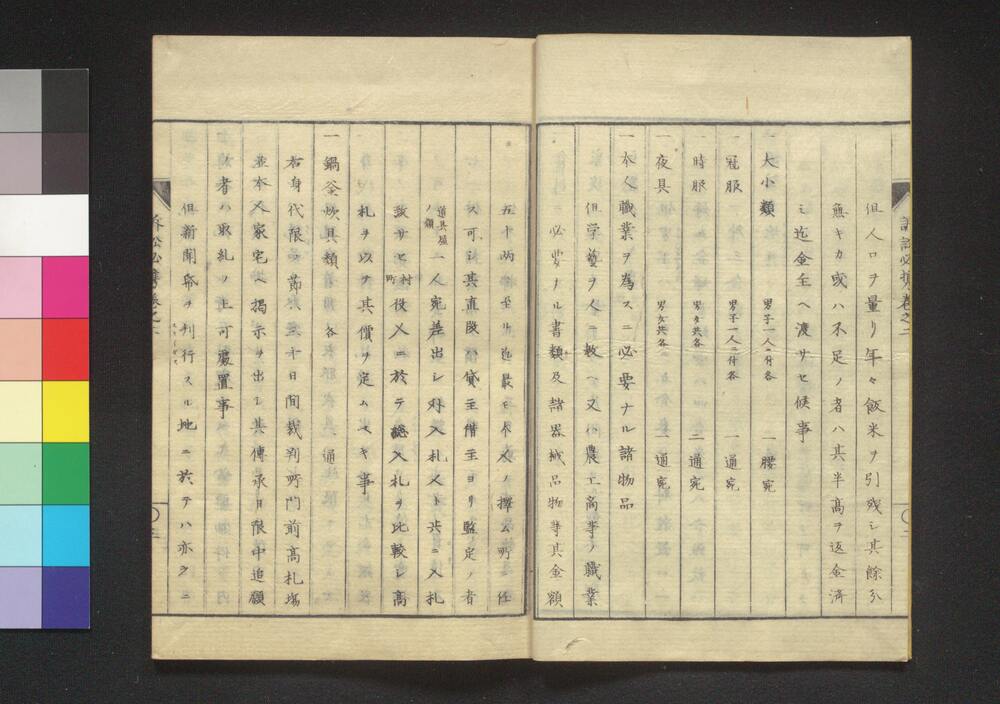 訴訟必携巻之二
但人口ヲ量リ年々飯米ヲ引残シ其餘分
無キカ或ハ不足ノ者ハ其半高ヲ返金済
ミ迄金主ヘ渡サセ候事
一大小類 男子一人ニ付各 一腰宛
一冠服 男子一人ニ付各 一通宛
一時服 男女共各 二通宛
一夜具 男女共各 一通宛
一本人職業ヲ為スニ必要ナル諸物品
但学藝ヲ人ニ教ヘ又ハ農工商等ノ職業
ニ必要ナル書類及諸器械品物等其金額
五十両ニ至ル迄最モ本人ノ擇ム所ニ任
ス可シ其直段ハ貸主借主ヨリ監定ノ者
道具屋ノ類二人宛差出シ入札人ト共ニ入札
致サセ村町役人ニ於テ総入札ヲ比較シ高
札ヲ以テ其價ヲ定ムヘキ事
一鍋釜炊具類 各 一通
右身代限ノ節ハ三十日間裁判所門前高札場
並本人家宅ヘ掲示ヲ出シ其傳承日限中追願
ノ者ハ取糺ノ上可處置事
但新聞紙ノ刊行スル地ニ於テハ亦タニ
訴訟必携巻之二